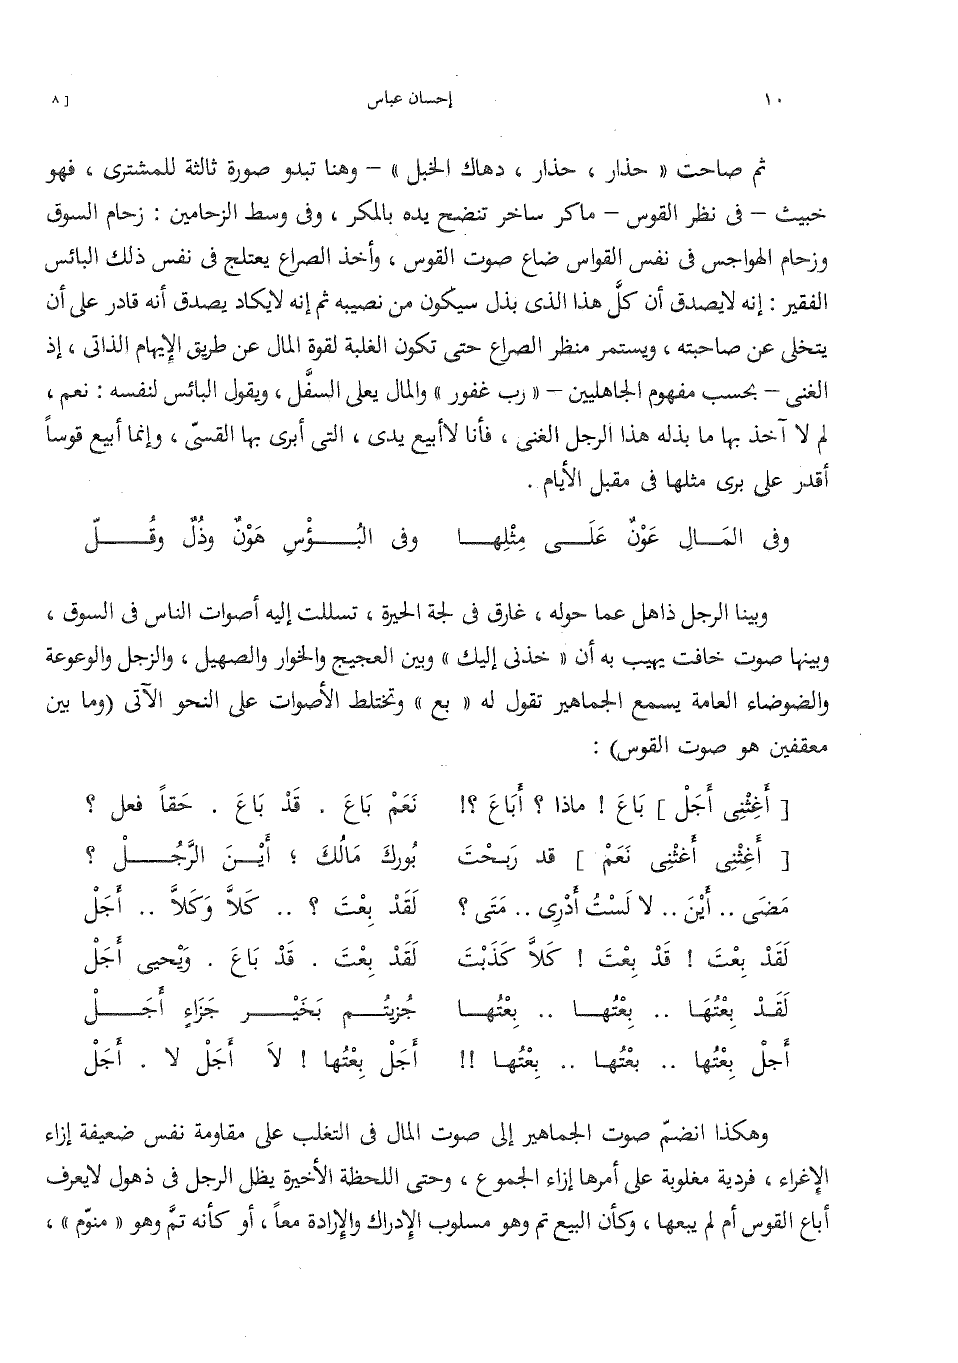 ١٠ إحسان عباس [ ٨
ثم صاحت « حذار ، حذار ، دهاك الخبل » – وهنا تبدو صورة ثالثة للمشترى ، فهو
خبيث – فى نظر القوس – ماكر ساخر تنضح يده بالمكر ، وفى وسط الزحامين : زحام السوق
وزحام الهواجس فى نفس القواس ضاع صوت القوس ، وأخذ الصراع يعتلج فى نفس ذلك البائس
الفقير : إنه لايصدق أن كلَّ هذا الذى بذل سيكون من نصيبه ثم إنه لايكاد يصدق أنه قادر على أن
يتخلى عن صاحبته ، ويستمر منظر الصراع حتى تكون الغلبة لقوة المال عن طريق الإيهام الذاتى ، إذ
الغنى – بحسب مفهوم الجاهليين – « رب غفور » والمال يعلى السفَّل ، ويقول البائس لنفسه : نعم ،
لم لا آخذ بها ما بذله هذا الرجل الغنى ، فأنا لاأبيع يدى ، التى أبرى بها القسىّ ، وإنما أبيع قوساً
أقدر على برى مثلها فى مقبل الأيام .
وفى المَـال عَوْنٌ عَلَـى مِثْلِهـا وفى البُـؤْسِ هَوْنٌ وذُلٌ وقُـلّ
وبينا الرجل ذاهل عما حوله ، غارق فى لجة الحيرة ، تسللت إليه أصوات الناس فى السوق ،
وبينها صوت خافت يهيب به أن « خذنى إليك » وبين العجيج والخوار والصهيل ، والزجل والوعوعة
والضوضاء العامة يسمع الجماهير تقول له « بع » وتختلط الأصوات على النحو الآتى (وما بين
معقفين هو صوت القوس) :
[ أَغِثْنِى أَجَلْ ] بَاعَ ! ماذا ؟ أَبَاعَ ؟! نَعَمْ بَاعَ . قَدْ بَاعَ . حَقاً فعل ؟
[ أَغِثْنِى أَغثْنِى نَعَمْ ] قد رَبِـحْتَ بُورِكَ مَالُكَ ؛ أَيْـنَ الرَّجُـل ؟
مَضَى .. أَيْنَ .. لا لَسْتُ أَدْرِى .. مَتَى ؟ لَقَدْ بِعْتَ ؟ .. كَلاَّ وَكَلاَّ .. أَجَلْ
لَقَدْ بِعْتَ ! قَدْ بِعْتَ ! كَلاَّ كَذَبْتَ لَقَدْ بِعْتَ . قَدْ بَاعَ . وَيْحيى أَجَلْ
لَقَـدْ بِعْتُهَـا .. بِعْتُهـا .. بِعْتُهـا جُزِيتُـم بَخَيْـر جَزَاءٍ أَجَـلْ
أَجلْ بِعْتُها .. بعْتُهـا .. بِعْتُهـا !! أَجَلْ بِعْتُها ! لاَ أَجَلْ لا . أَجَلْ
وهكذا انضمّ صوت الجماهير إلى صوت المال فى التغلب على مقاومة نفس ضعيفة إزاء
الإغراء ، فردية مغلوبة على أمرها إزاء الجموع ، وحتى اللحظة الأخيرة يظل الرجل فى ذهول لايعرف
أباع القوس أم لم يبعها ، وكأن البيع تم وهو مسلوب الإدراك والإرادة معاً ، أو كأنه تمَّ وهو « منوّم » ،